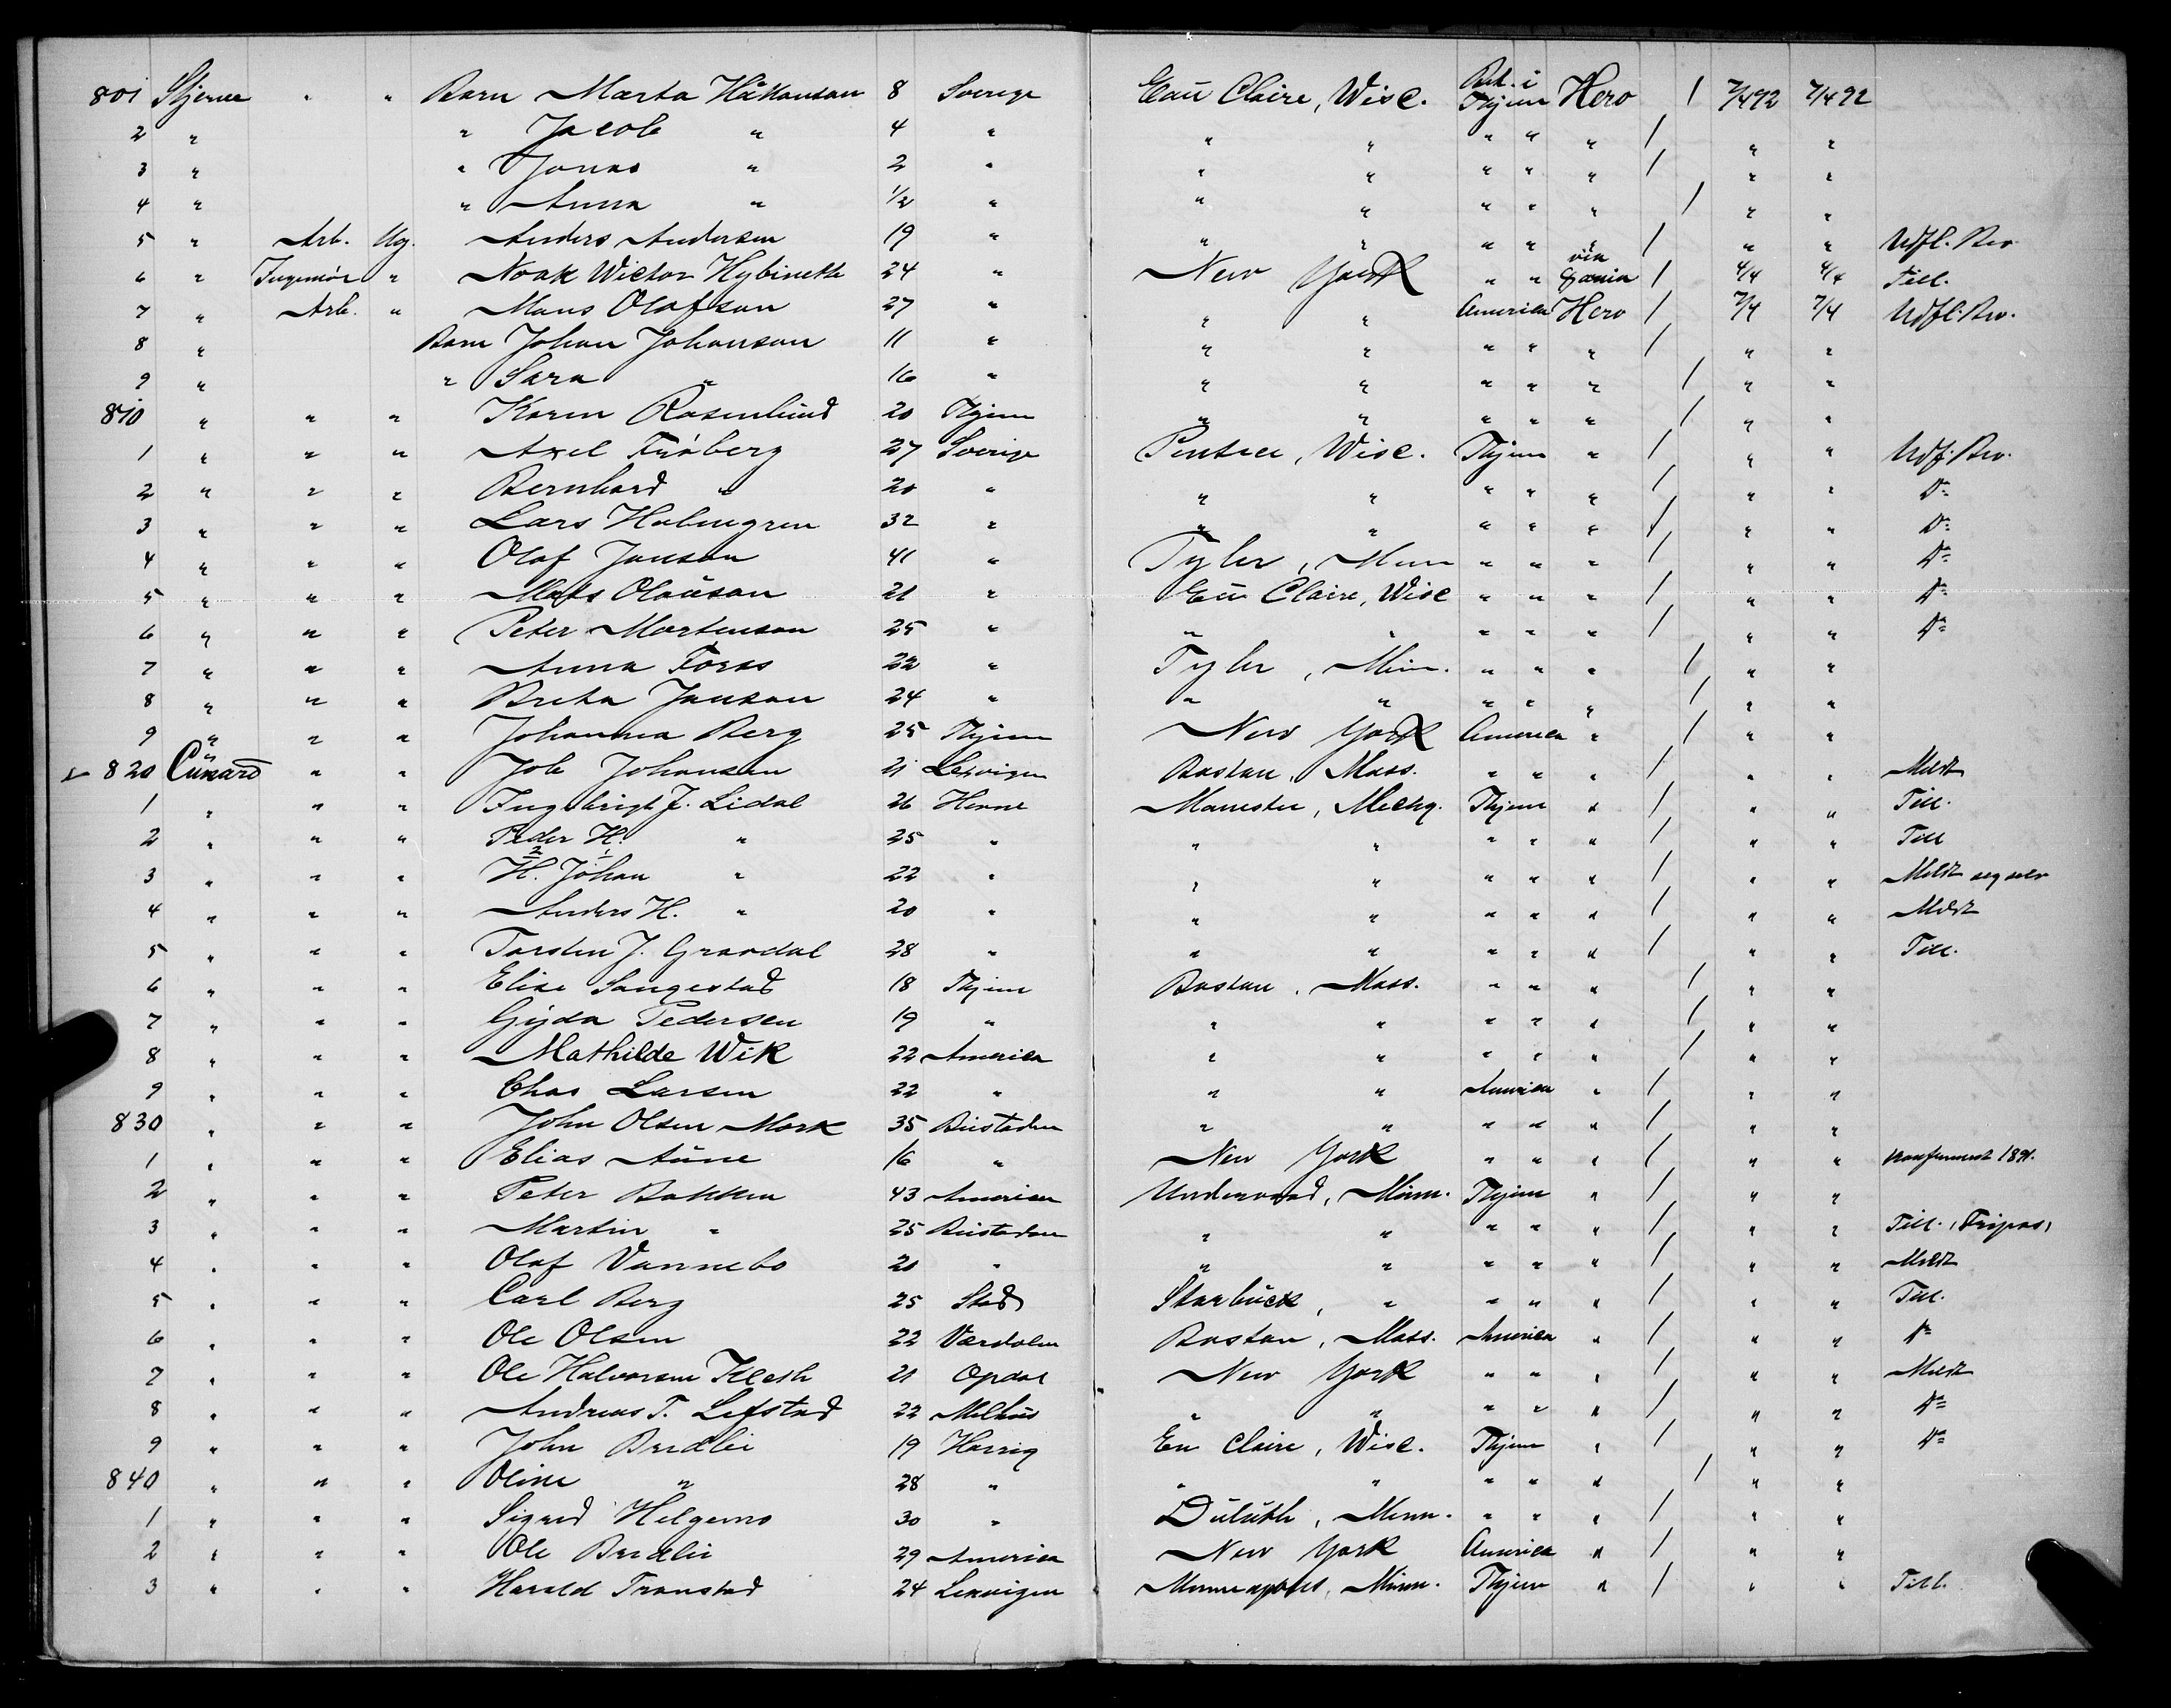 801 Stjerne " " Barn Marta Håkanson 8 Sverige Eau Claire, Wisc. Bet. i Thjem Hero / 7/4 92 7/4 92
2 " " Jacob " 4 " " " " " " / " "
3 " " Jonas " 2 " " " " " " / " "
4 " " Anna " 1/2 " " " " " " / " "
5 " Arb. Ug. Anders Andersen 19 " " " " " " / " " Udfl. Bev.
6 " Ingeniör " Noak Wictor Hybinette 24 " New York " " via / 4/4 4/4 Till.
7 " Arb. " Mans Olafson 27 " " " America Hero / 7/4 7/4 Udfl. Bev.
8 " Barn Johan Johanson 11 " " " " " " / " "
9 " " Sara " 16 " " " " " " / " "
810 " " " Karen Rosenlund 20 Thjem " " " " " / " "
1 " " " Axel Fröberg 27 Sverige Pensaee, Wisc. Thjem " / " " Udf. Bev.
2 " " " Bernhard " 20 " " " " " " / " " Do
3 " " " Lars Holmgren 32 " " " " " " / " " Do
4 " " " Olof Janson 41 " Tyler, Minn " " " / " " Do
5 " " " Mats Olauson 21 " Eau Claire, Wisc " " " / " " Do
6 " " " Peter Mortenson 25 " " " " " " / " " Do
7 " " " Anna Forss 22 " Tyler, Minn. " " " / " "
8 " " " Breta Janson 24 " " " " " " / " "
9 " " " Johanna Berg 25 Thjem New York America " / " "
820 Cunard " " Job Johansen 21 Lexvigen Boston, Mass. " " " / " " Meldt
1 " " " Ingebrigt J. Lidal 26 Hevne Manestee, Mechg. Thjem " / " " Till.
2 " " " Peder H. " 25 " " " " " " / " " Till
3 " " " H. Johan " 22 " " " " " " / " " Meldt seg selv
4 " " " Anders H. " 20 " " " " " " / " " Meldt
5 " " " Torsten J. Gravdal 28 " " " " " " / " " Till.
6 " " " Elise Saugestad 18 Thjem Boston, Mass. " " " / " "
7 " " " Gyda Pedersen 19 " " " " " " / " "
8 " " " Mathilde Wik 22 America " " " " " / " "
9 " " " Chas Larsen 22 " " " America " / " "
830 " " " John Olsen Mork 35 Beistaden " " " " " / " "
1 " " " Elias Aune 16 " New York " " " / " " Konfirmert 1891.
2 " " " Peter Bakken 43 America Underwood, Minn. Thjem " / " "
3 " " " Martin " 25 Beistaden " " " " " / " " Till. (Fripas)
4 " " " Olaf Vannebo 20 " " " " " " / " " Meldt
5 " " " Carl Berg 25 Stod Starbuck, " " " " / " " Till.
6 " " " Ole Olsen 22 Værdalen Boston, Mass. America " / " " Do
7 " " " Ole Halvorsen Kleth 21 Opdal New York " " " / " " Meldt
8 " " " Andreas T. Lefstad 22 Melhus " " " " " / " " Do
9 " " " John Bredlie 19 Harrig Eu Claire, Wisc. Thjem " / " " Do
840 " " " Oline " 28 " " " " " " / " "
1 " " " Sigrid Helgemo 30 " Duluth, Minn. " " " / " "
2 " " " Ole Bredlie 29 America New York America " / " "
3 " " " Harald Tronstad 24 Lexvigen Minneapolis, Minn. Thjem " / " " Till.